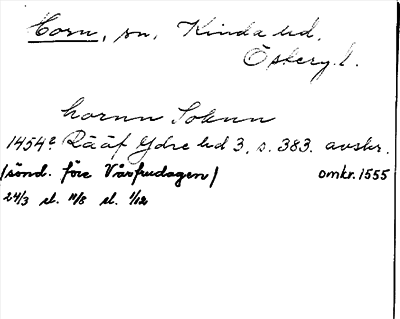 Horn, sn, Kinda hd.
Österg. l.
hornn Soknn
1454? Rääf Ydre hd 3, s. 383. avskr.
(sönd. före Vårfrudagen) omkr. 1555
24/3 el. 11/8 el. 1/12